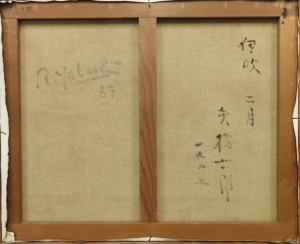 伊吹 二月
矢橋六郎
一九八七
R. Yabashi
87